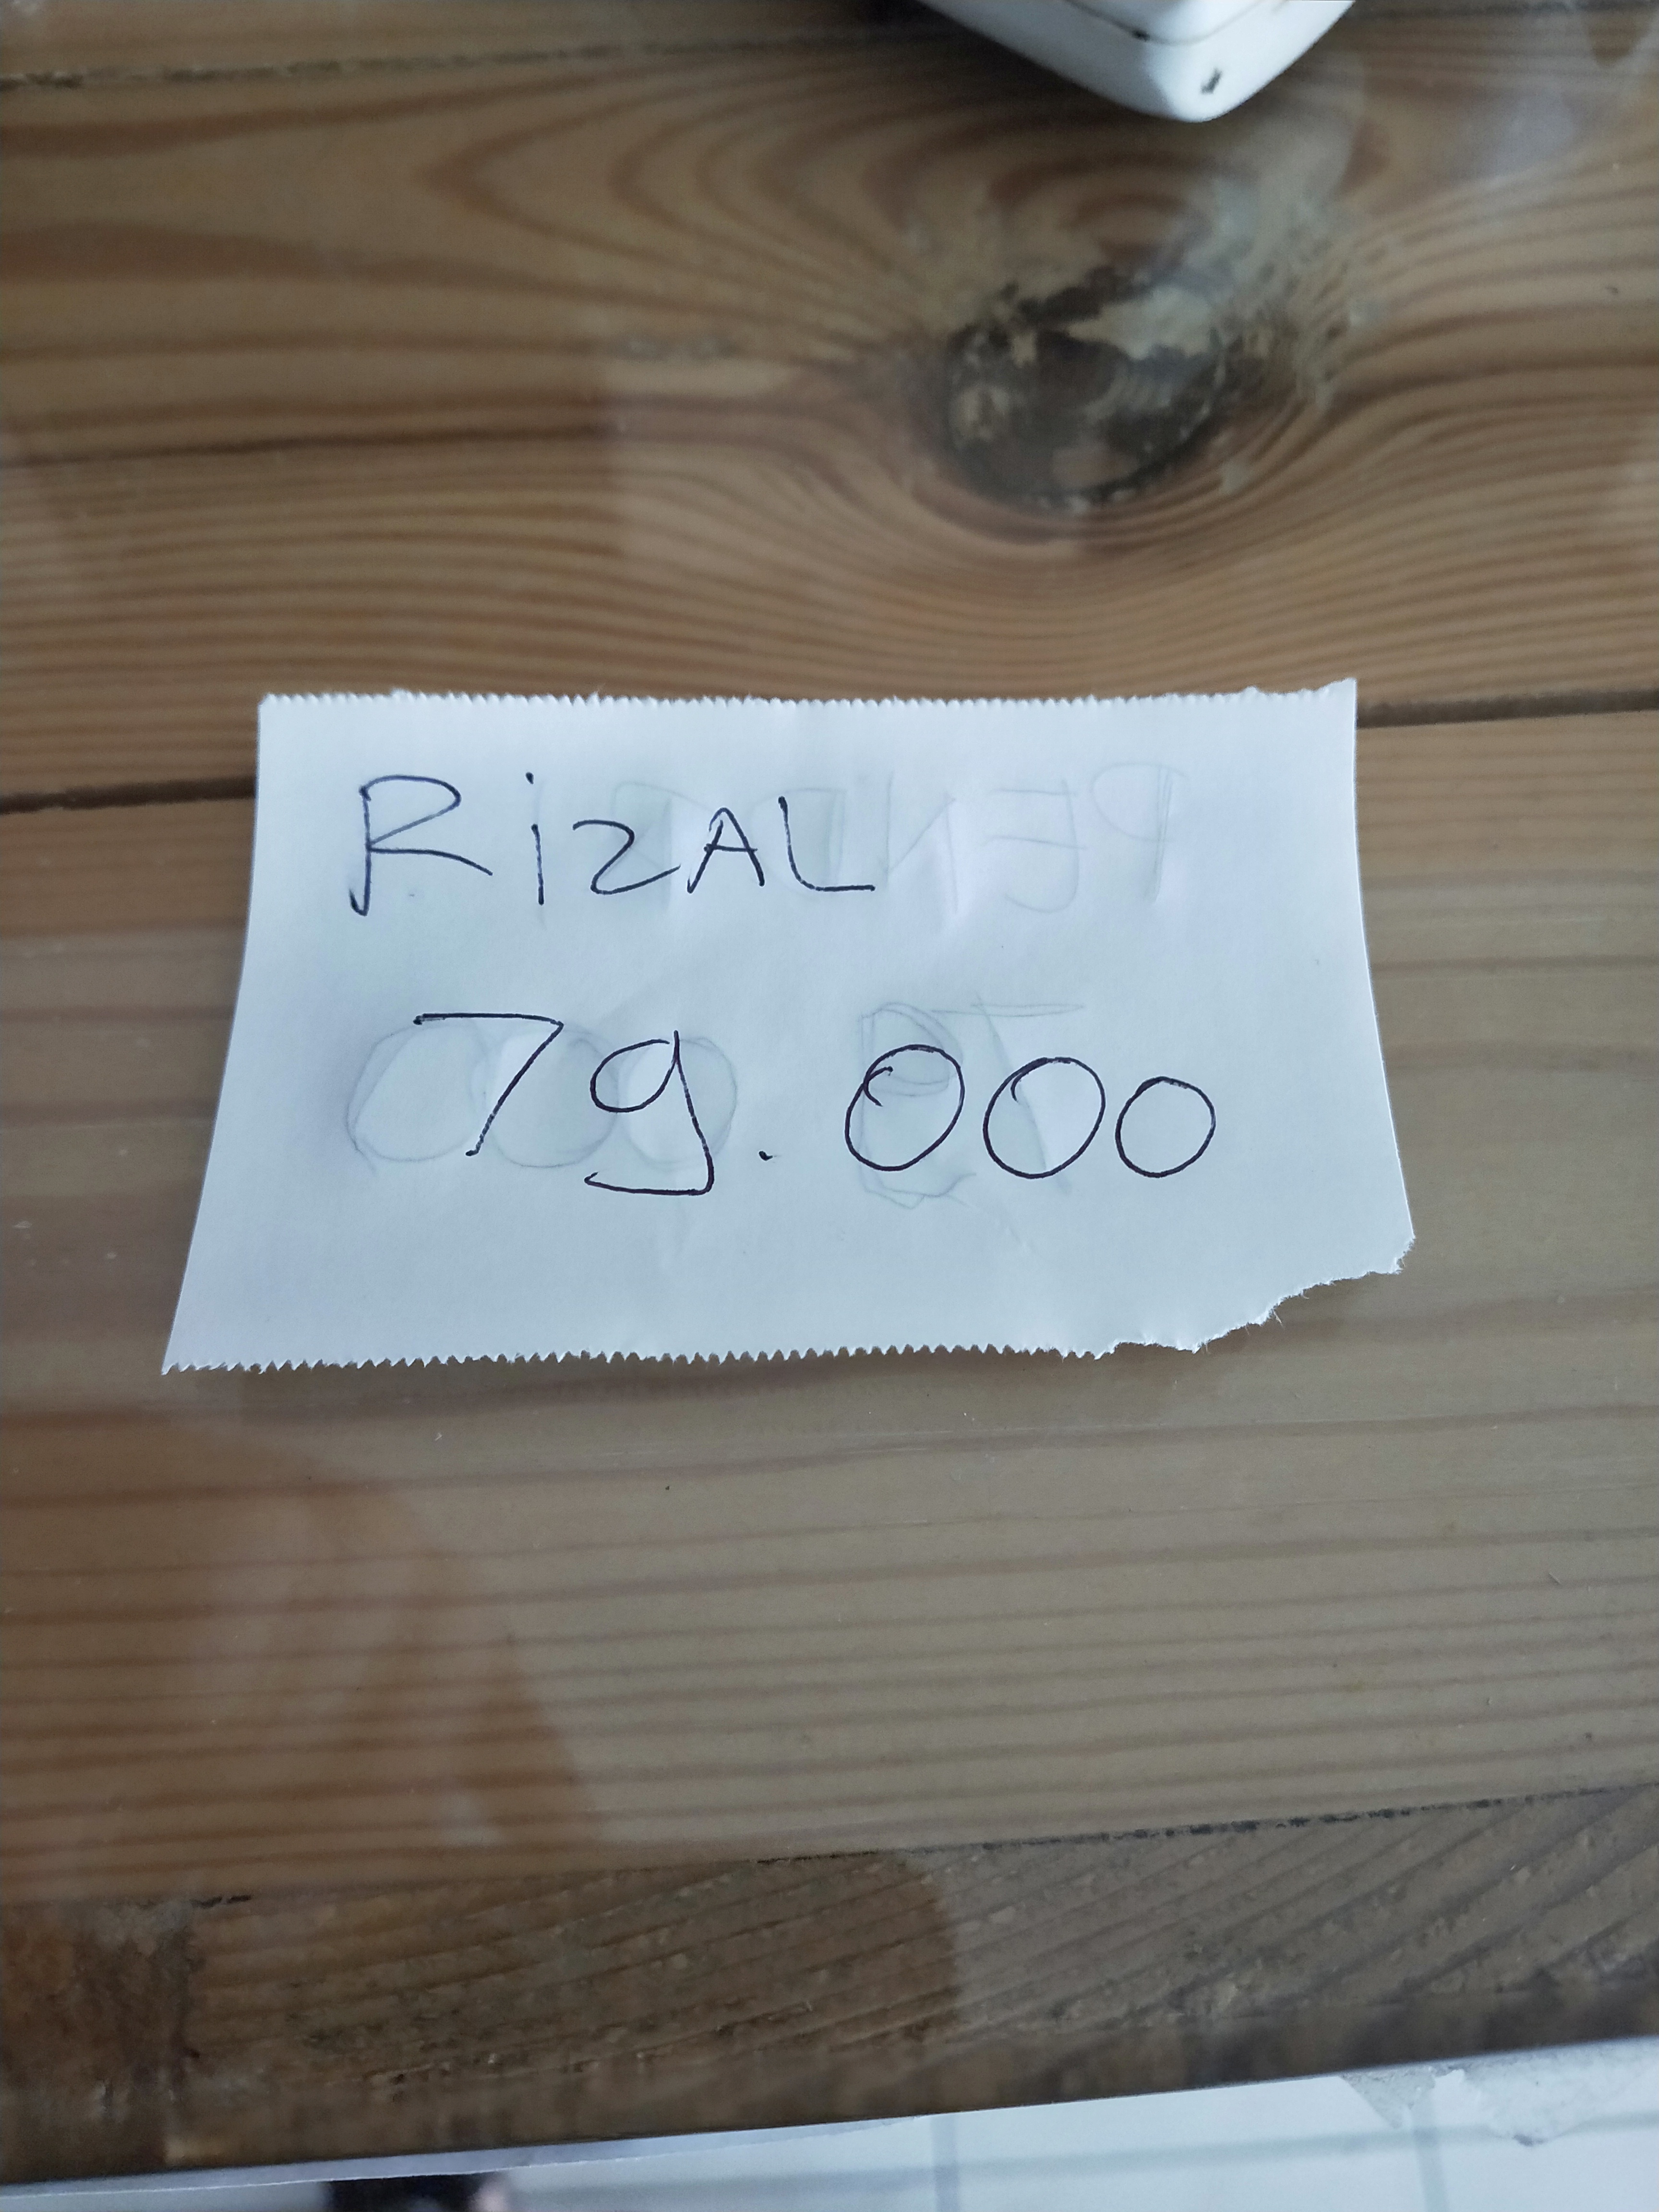 RiZAL
79.000